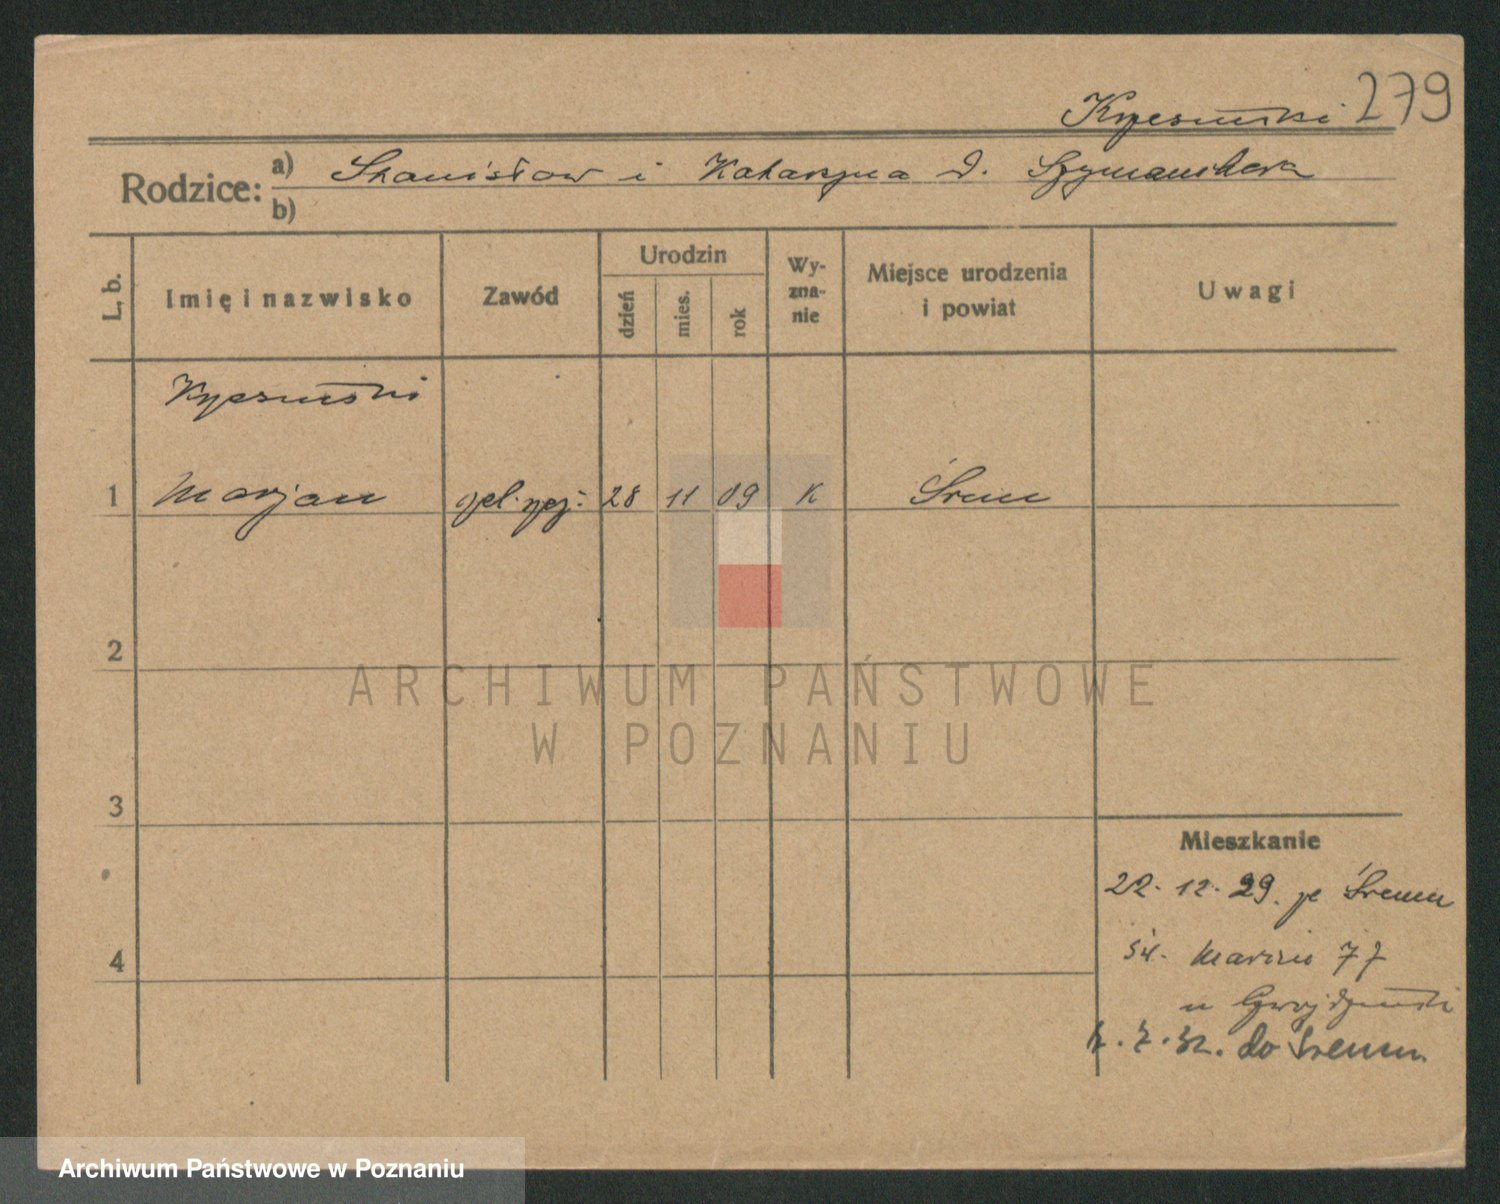 279
Rodzice: a) Stanisław i Katarzyna d. Szymańska
b)
L. b. Imię i nazwisko Zawód Urodzin dzień mies. rok Wy-zna-nie Miejsce urodzenia i powiat Uwagi
1 Marjan 28 11 09 K Śrem
2
ARCHIWUM PAŃSTWOWE
W POZNANIU
3
Mieszkanie
22. 12. 29. ze Śremu
4 św. Marcin 77
u
do Śremu.
Archiwum Państwowe w Poznaniu